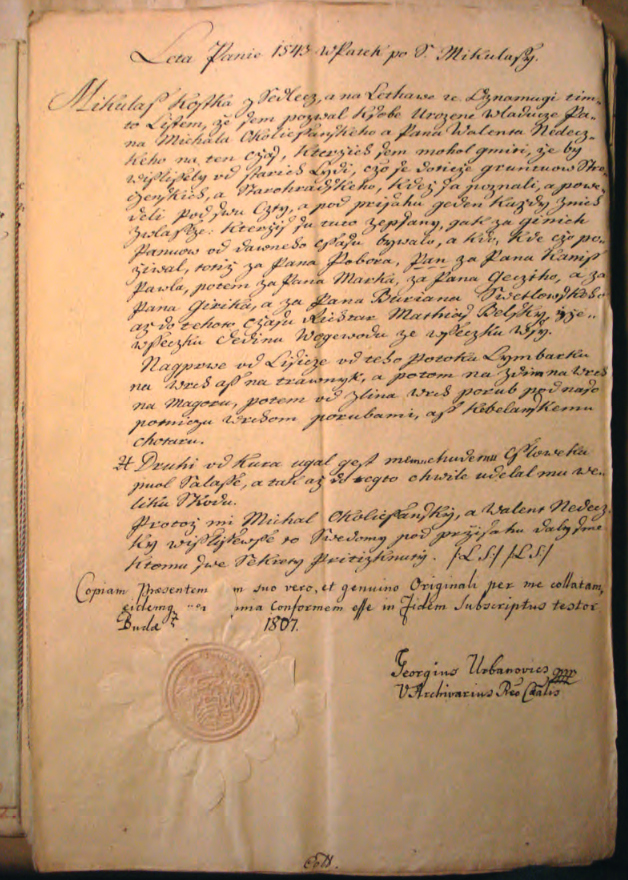 Leta Panie 1543 w Patek po S. Mikulassy.
Mikulass Kostka z Sedlecz, a na Lethawe rc. Oznamugi tim-
to Listem, že sem pozwal k sobe Urozeni Wladicze Pa-
na Michala Okoliessanskeho a Pana Walenta Nedecz-
keho na ten Czas, kterzich sem mohol gmiti, že by
wislisseli od starich Lydi, czo se doticze gruntuow Stre-
czenskich, a Starohradskeho, kdež sa poznali, a powe-
deli pod dwu Czty, a pod prisahu geden každy z nich
zwlasste: kterziž su tuto zepsany, gak za ginich
Panuow od dawneho czasu bywalo, a kto, kde czo po-
žiwal, totiž za Pana Pobora, Pan za Pana Kaniss
Pawla, potem za Pana Marka, za Pana Gecziho, a za
Pana Girika, a za Pana Buriana Swetlowskeho
až do tehoto Czasu Richtar Mathias Belsky,
wssecku Dedinu Wogewodu ze wsseczku Wsy.
Nagprwe od Lisicze od teho potoka Lymbachu
na Wrch ass na trawnyk, a potom na zdim na wrch
na Magoru, potem od zlina wrch porub pod naso
potniczu Wrchom porubami, ass k Kebelanskemu
chotaru.
Druhi od kura ugal gest memu chudemu Czloweku
puol Salasse, a tak až do tegto chwile udelal mu we-
liku Skodu.
Protož mi Michal Okoliessansky, a Walent Nedecz-
ky wislissewsse to Swedomy pod prisahu daly sme
k tomu dwe Sekrety Pritisknuty. /:L.S:/ /:L.S:/
Copiam Præsentem suo vero, et genuino Originali per me collatam,
eidemq conformem esse in Fidem Subscriptus testor
Budæ 1807.
Georgius Urbanovics mpp
V Archivarius Reo Cralis